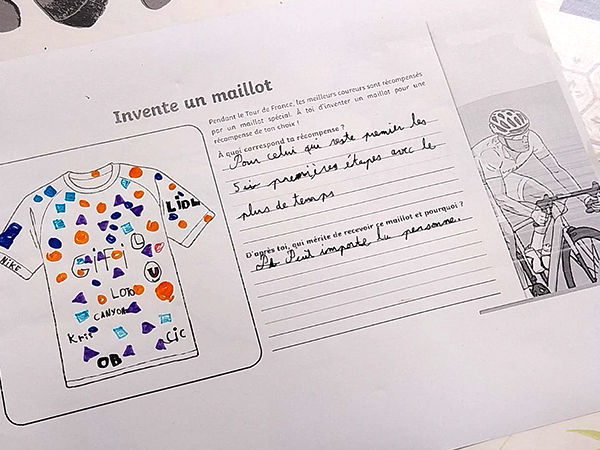 Invente un maillot
Pendant le Tour de France, les meilleurs coureurs sont récompensés
par un maillot spécial. À toi d'inventer un maillot pour une
récompense de ton choix !
À quoi correspond ta récompense ?
Pour celui qui reste premier les
premières étapes avec le
plus de temps
D'après toi, qui mérite de recevoir ce maillot et pourquoi ?
Peut importe la personne.
LiDL
NiKE
GiFi
L
U
LOTO
CANYON
Kris
CiC
OB